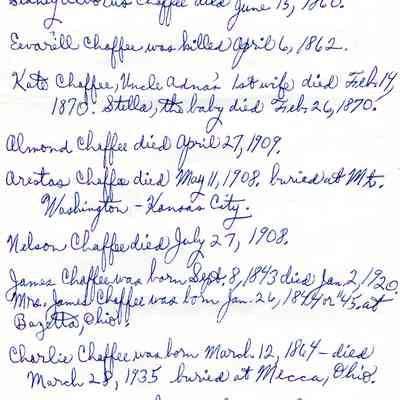 Sidney Chaffee died June 15, 1860.
Evarell Chaffee was killed April 6, 1862.
Kate Chaffee, Uncle Adna's 1st wife died Feb. 14,
1870. Stella, the baby died Feb. 26, 1870.
Almond Chaffee died April 27, 1909.
Arestas Chaffee died May 11, 1908. buried at Mt.
Washington - Kansas City.
Nelson Chaffee died July 27, 1908.
James Chaffee was born Sept. 8, 1843 died Jan. 2, 1920.
Mrs. James Chaffee was born Jan. 26, 1844 or '45, at
Bazetta, Ohio.
Charlie Chaffee was born March 12, 1864 - died
March 28, 1935 buried at Mecca, Ohio.